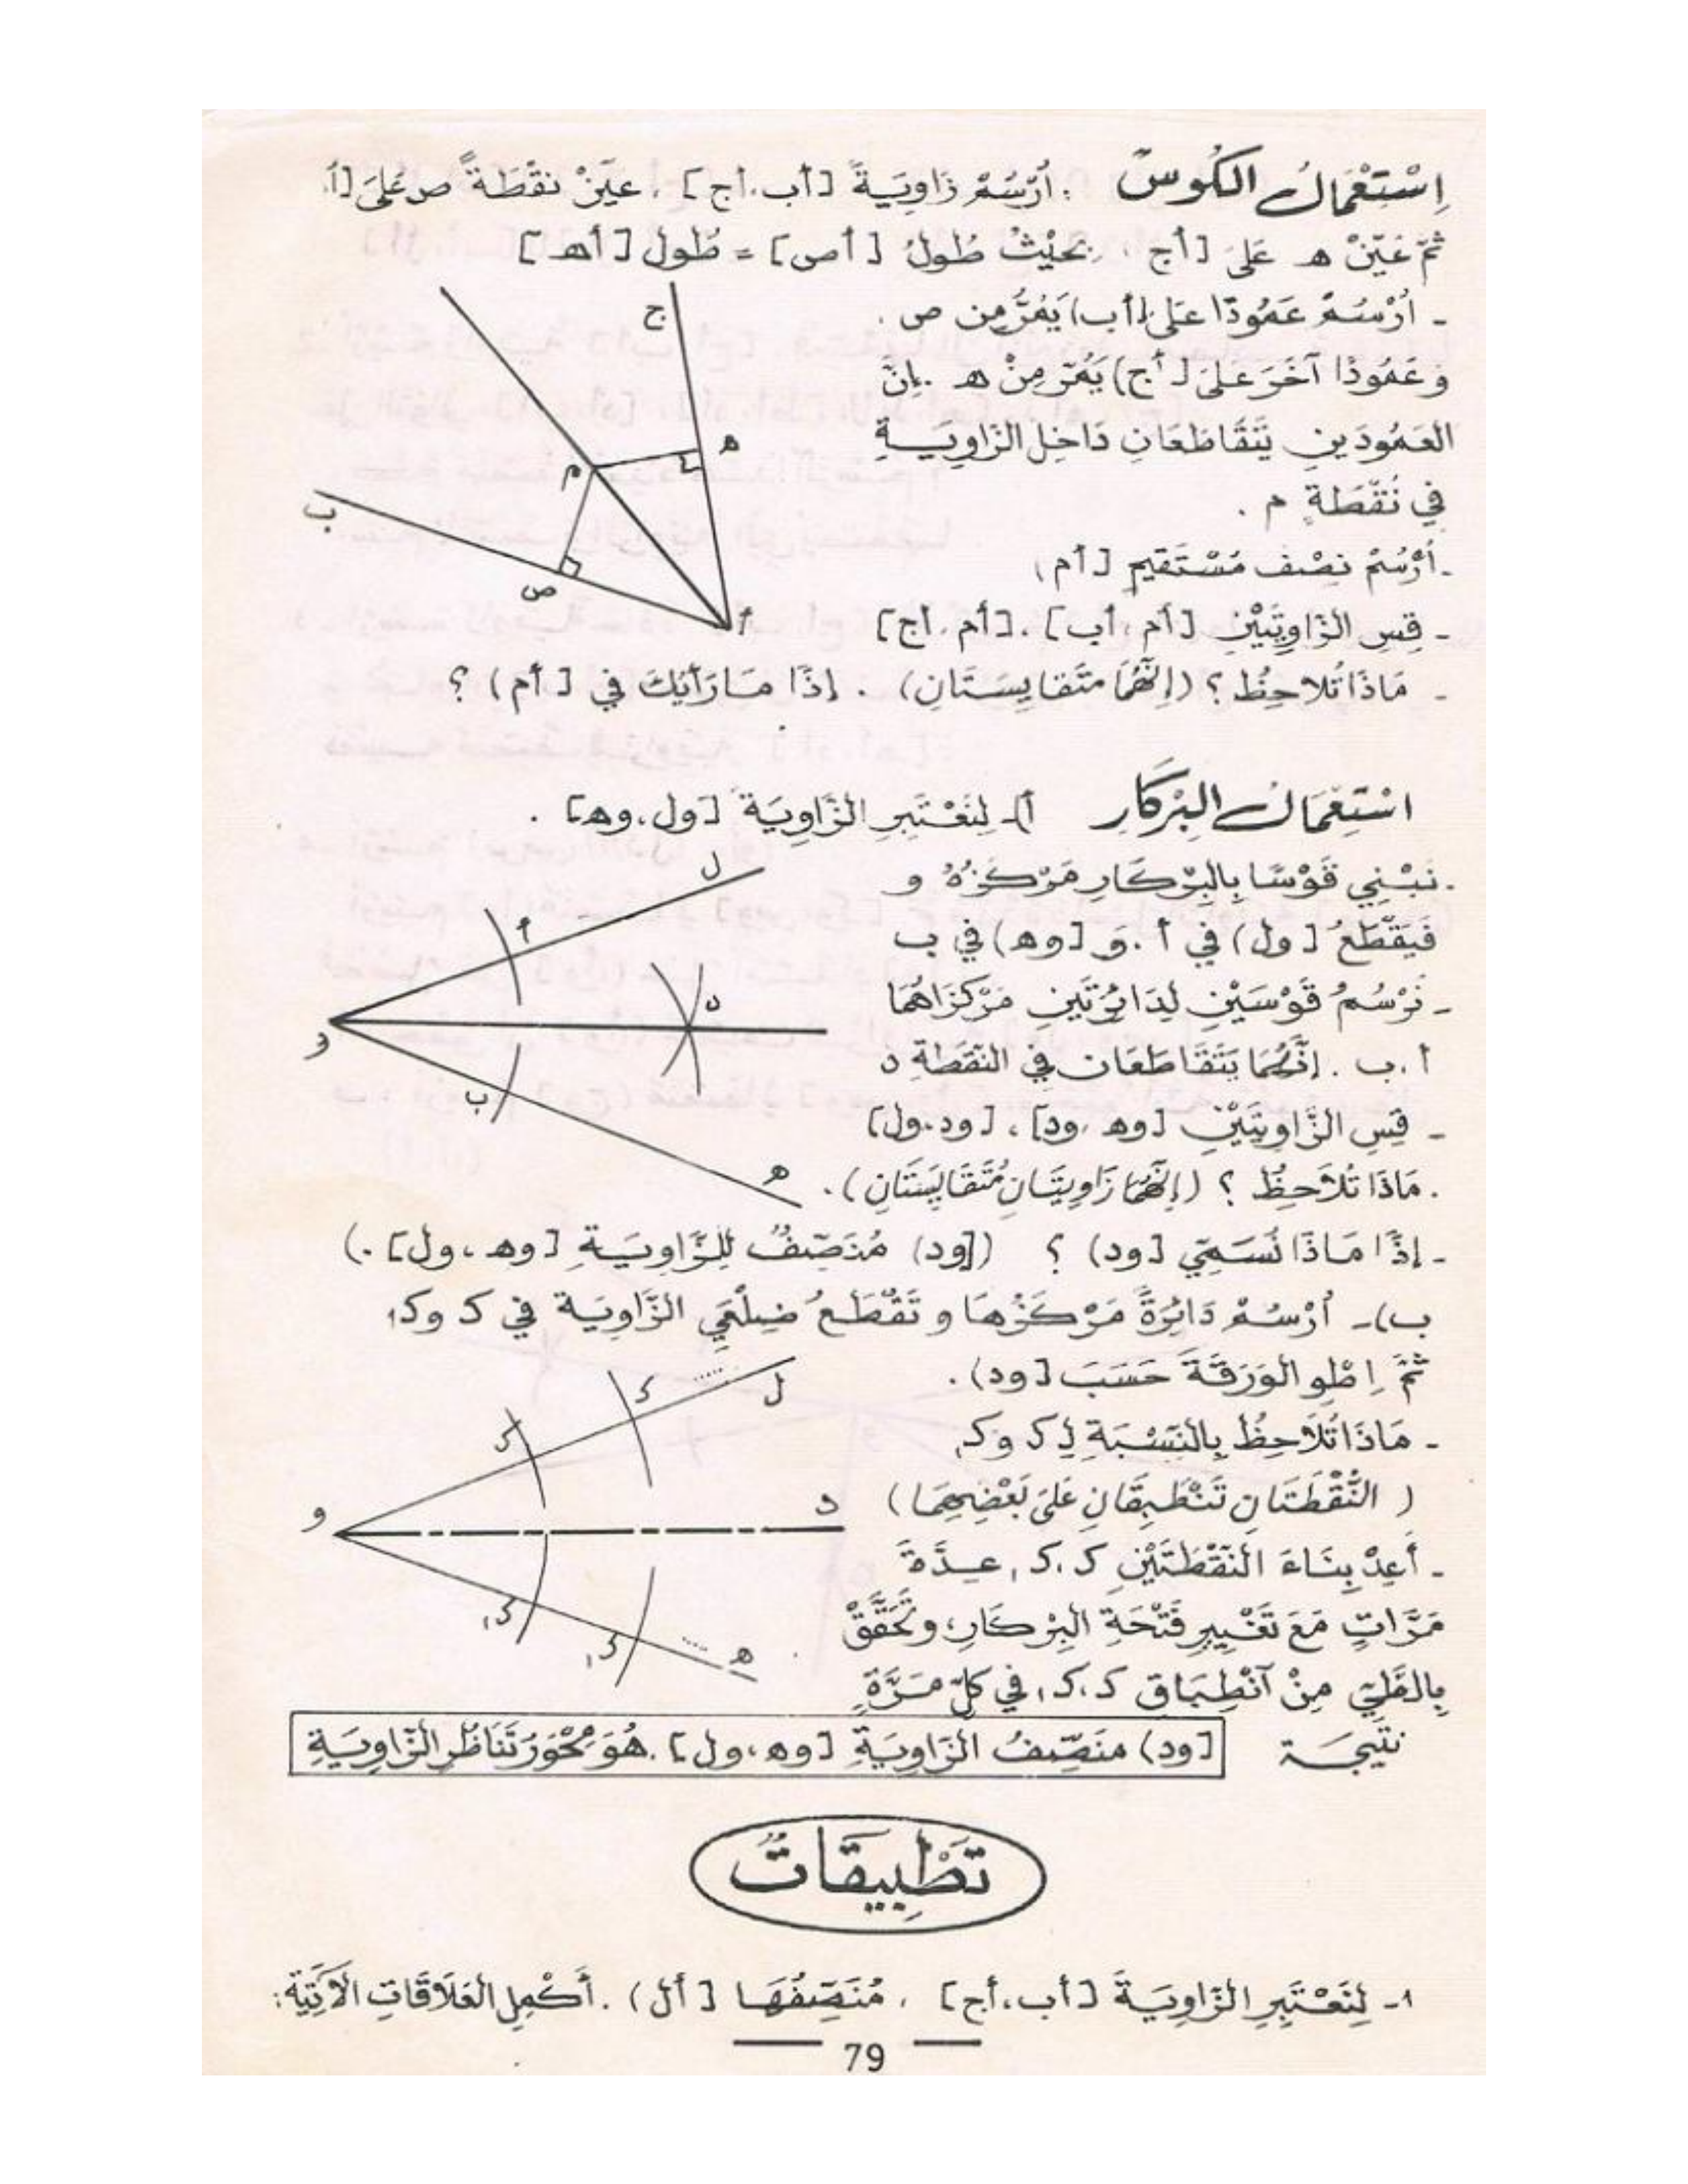 اِسْتِعْمَالُ الكُوسِ : أُرْسُمْ زَاوِيَةً [أب،أج] . عَيِّنْ نقْطَةً ص عَلَى [أ.
ثُمَّ عَيِّنْ ه عَلَى [أج ، بحَيْثُ طُولُ [أص] = طُول [أه]
- اُرْسُمْ عَمُودًا عَلَى [أب) يَمُرُّ مِن ص .
وَ عَمُودًا آخَرَ عَلَى [أج) يَمُرّ مِنْ ه . إِنَّ
العَمُودَينِ يَتَقَاطَعَانِ دَاخِلَ الزَّاوِيَــةِ
فِي نُقْطَةٍ م .
- اُرْسُمْ نِصْف مُسْتَقِيمٍ [أم)
- قِسِ الزَّاوِيَتَيْنِ [أم ، أب] ، [أم ، أج]
- مَاذَا تُلاحِظُ ؟ (إِنَّهُمَا مَتَقايِسَتَانِ) . إِذًا مَا رَأْيُكَ في [أم) ؟
ج
ه
م
ب
ص
أ
اسْتِعْمَالُ البِرْكَارِ أ)- لِنَعْتَبِرِ الزَّاوِيَةَ [ول،وه] .
. نَبْنِي قَوْسًا بِالبِرْكَارِ مَرْكَزُهُ و
فَيَقْطَعُ [ول) في أ . وَ [وه) في ب
- نَرْسُمُ قَوْسَيْنِ لِدَائِرَتَينِ مَرْكَزَاهُمَا
أ ، ب . إِنَّهُمَا يَتَقَاطَعَان في النّقْطَةِ د
- قِسِ الزَّاوِيَتَيْنِ [وه ،ود] ، [ود،ول]
. مَاذَا تُلَاحِظُ ؟ (إِنَّهُمَا زَاوِيَتَانِ مُتَقَايِسَتَانِ) .
ل
أ
د
و
ب
ه
- إِذًا مَاذَا نُسَمِّي [ود) ؟ ([ود) مُنَصِّفُ لِلزَّاوِيَــةِ [وه ، ول] .)
ب)- اُرْسُمْ دَائِرَةً مَرْكَزُهَا و تَقْطَعُ ضِلْعَيِ الزَّاوِيَة في ك وك،
ثُمَّ اِطْوِ الوَرَقَةَ حَسَبَ [ود) .
- مَاذَا تُلَاحِظُ بِالنِّسْبَةِ لِ ك وك,
( النُّقْطَتَانِ تَنْطَبِقَانِ عَلَى بَعْضِهِمَا )
- أَعِدْ بِنَاءَ النّقْطَتَيْنِ ك ،ك, عِــدَّةَ
مَرَّاتٍ مَعَ تَغْيِيرِ فَتْحَةِ البِرْكَارِ، وتَحَقَّقْ
بِالطَّيِّ مِنْ آنْطِبَاقِ ك ،ك, في كلّ مَرَّةٍ
ك
ل
ك
و
د
ك,
ك,
ه
نتيجــة [ود) منَصِّفُ الزَّاوِيَةِ [وه،ول] . هُوَ مِحْوَرُ تَنَاظُرِ الزَّاوِيَةِ
تَطْبِيقَاتٌ
١- لِنَعْتَبِرِ الزَّاوِيَةَ [أب،أج] ، مُنَصِّفُهَا [أل) . أَكْمِلِ العَلَاقَاتِ الآتِيَةَ :
79